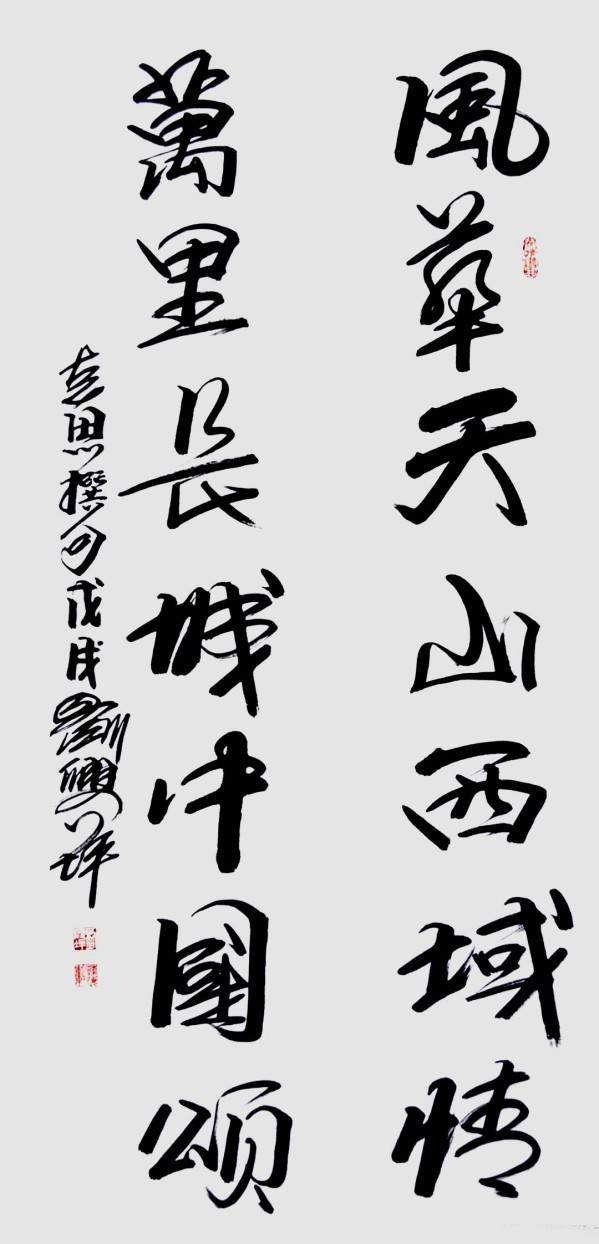 風華天山西域情
萬里長城中國頌
思撰句戊戌劉興